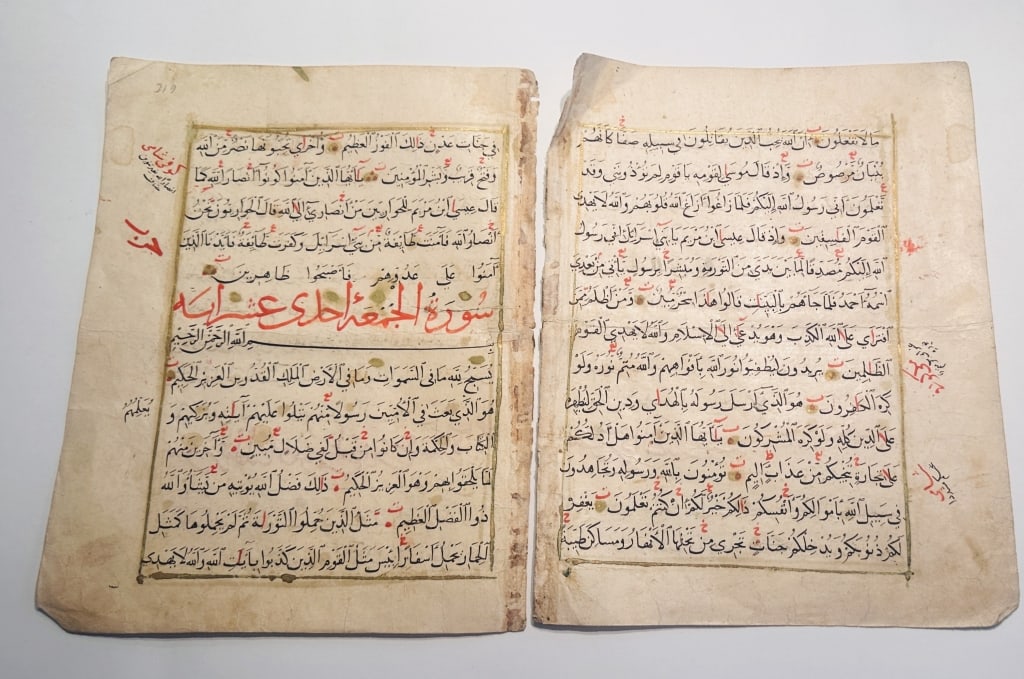 ما لا تفعلون ان الله يحب الذين يقاتلون في سبيله صفا كانهم
بنيان مرصوص واذ قال موسى لقومه يا قوم لم تؤذونني وقد
تعلمون اني رسول الله اليكم فلما زاغوا ازاغ الله قلوبهم والله لا يهدي
القوم الفاسقين واذ قال عيسى ابن مريم يا بني اسرائيل اني رسول
الله اليكم مصدقا لما بين يدي من التورية ومبشرا برسول ياتي من بعدي
اسمه احمد فلما جاءهم بالبينات قالوا هذا سحر مبين ومن اظلم ممن
افتراي على الله الكذب وهو يدعى الى الاسلام والله لا يهدي القوم
الظالمين يريدون ليطفئوا نور الله بافواههم والله متم نوره ولو
كره الكافرون هو الذي ارسل رسوله بالهداي ودين الحق ليظهره
على الدين كله ولو كره المشركون يا ايها الذين آمنوا هل ادلكم
على تجارة تنجيكم من عذاب اليم تؤمنون بالله ورسوله وتجاهدون
في سبيل الله باموالكم وانفسكم ذالكم خير لكم ان كنتم تعلمون يغفر
لكم ذنوبكم ويدخلكم جنات تجري من تحتها الانهار ومساكن طيبة
في جنات عدن ذالك الفوز العظيم واخراي تحبونها نصر من الله
وفتح قريب وبشر المؤمنين يا ايها الذين آمنوا كونوا انصار الله كما
قال عيسى ابن مريم للحواريين من انصاري الى الله قال الحواريون نحن
انصار الله فآمنت طائفة من بني اسرائيل وكفرت طائفة فايدنا الذين
آمنوا على عدوهم فاصبحوا ظاهرين
سورة الجمعة احدى عشر ايه
بسم الله الرحمن الرحيم
يسبح لله ما في السموات وما في الارض الملك القدوس العزيز الحكيم
هو الذي بعث في الاميين رسولا منهم يتلوا عليهم آياته ويزكيهم و
يعلمهم
الكتاب والحكمة وان كانوا من قبل لفي ضلال مبين وآخرين منهم
لما يلحقوا بهم وهو العزيز الحكيم ذالك فضل الله يؤتيه من يشاء والله
ذوا الفضل العظيم مثل الذين حملوا التورىة ثم لم يحملوها كمثل
الحمار يحمل اسفارا بئس مثل القوم الذين كذبوا بايات الله والله لا يهدي